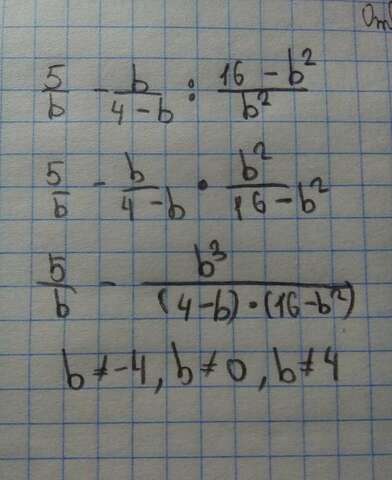 От
5/b - b/(4-b) : (16-b²)/b²
5/b - b/(4-b) · b²/(16-b²)
5/b - b³/((4-b)·(16-b²))
b≠-4, b≠0, b≠4